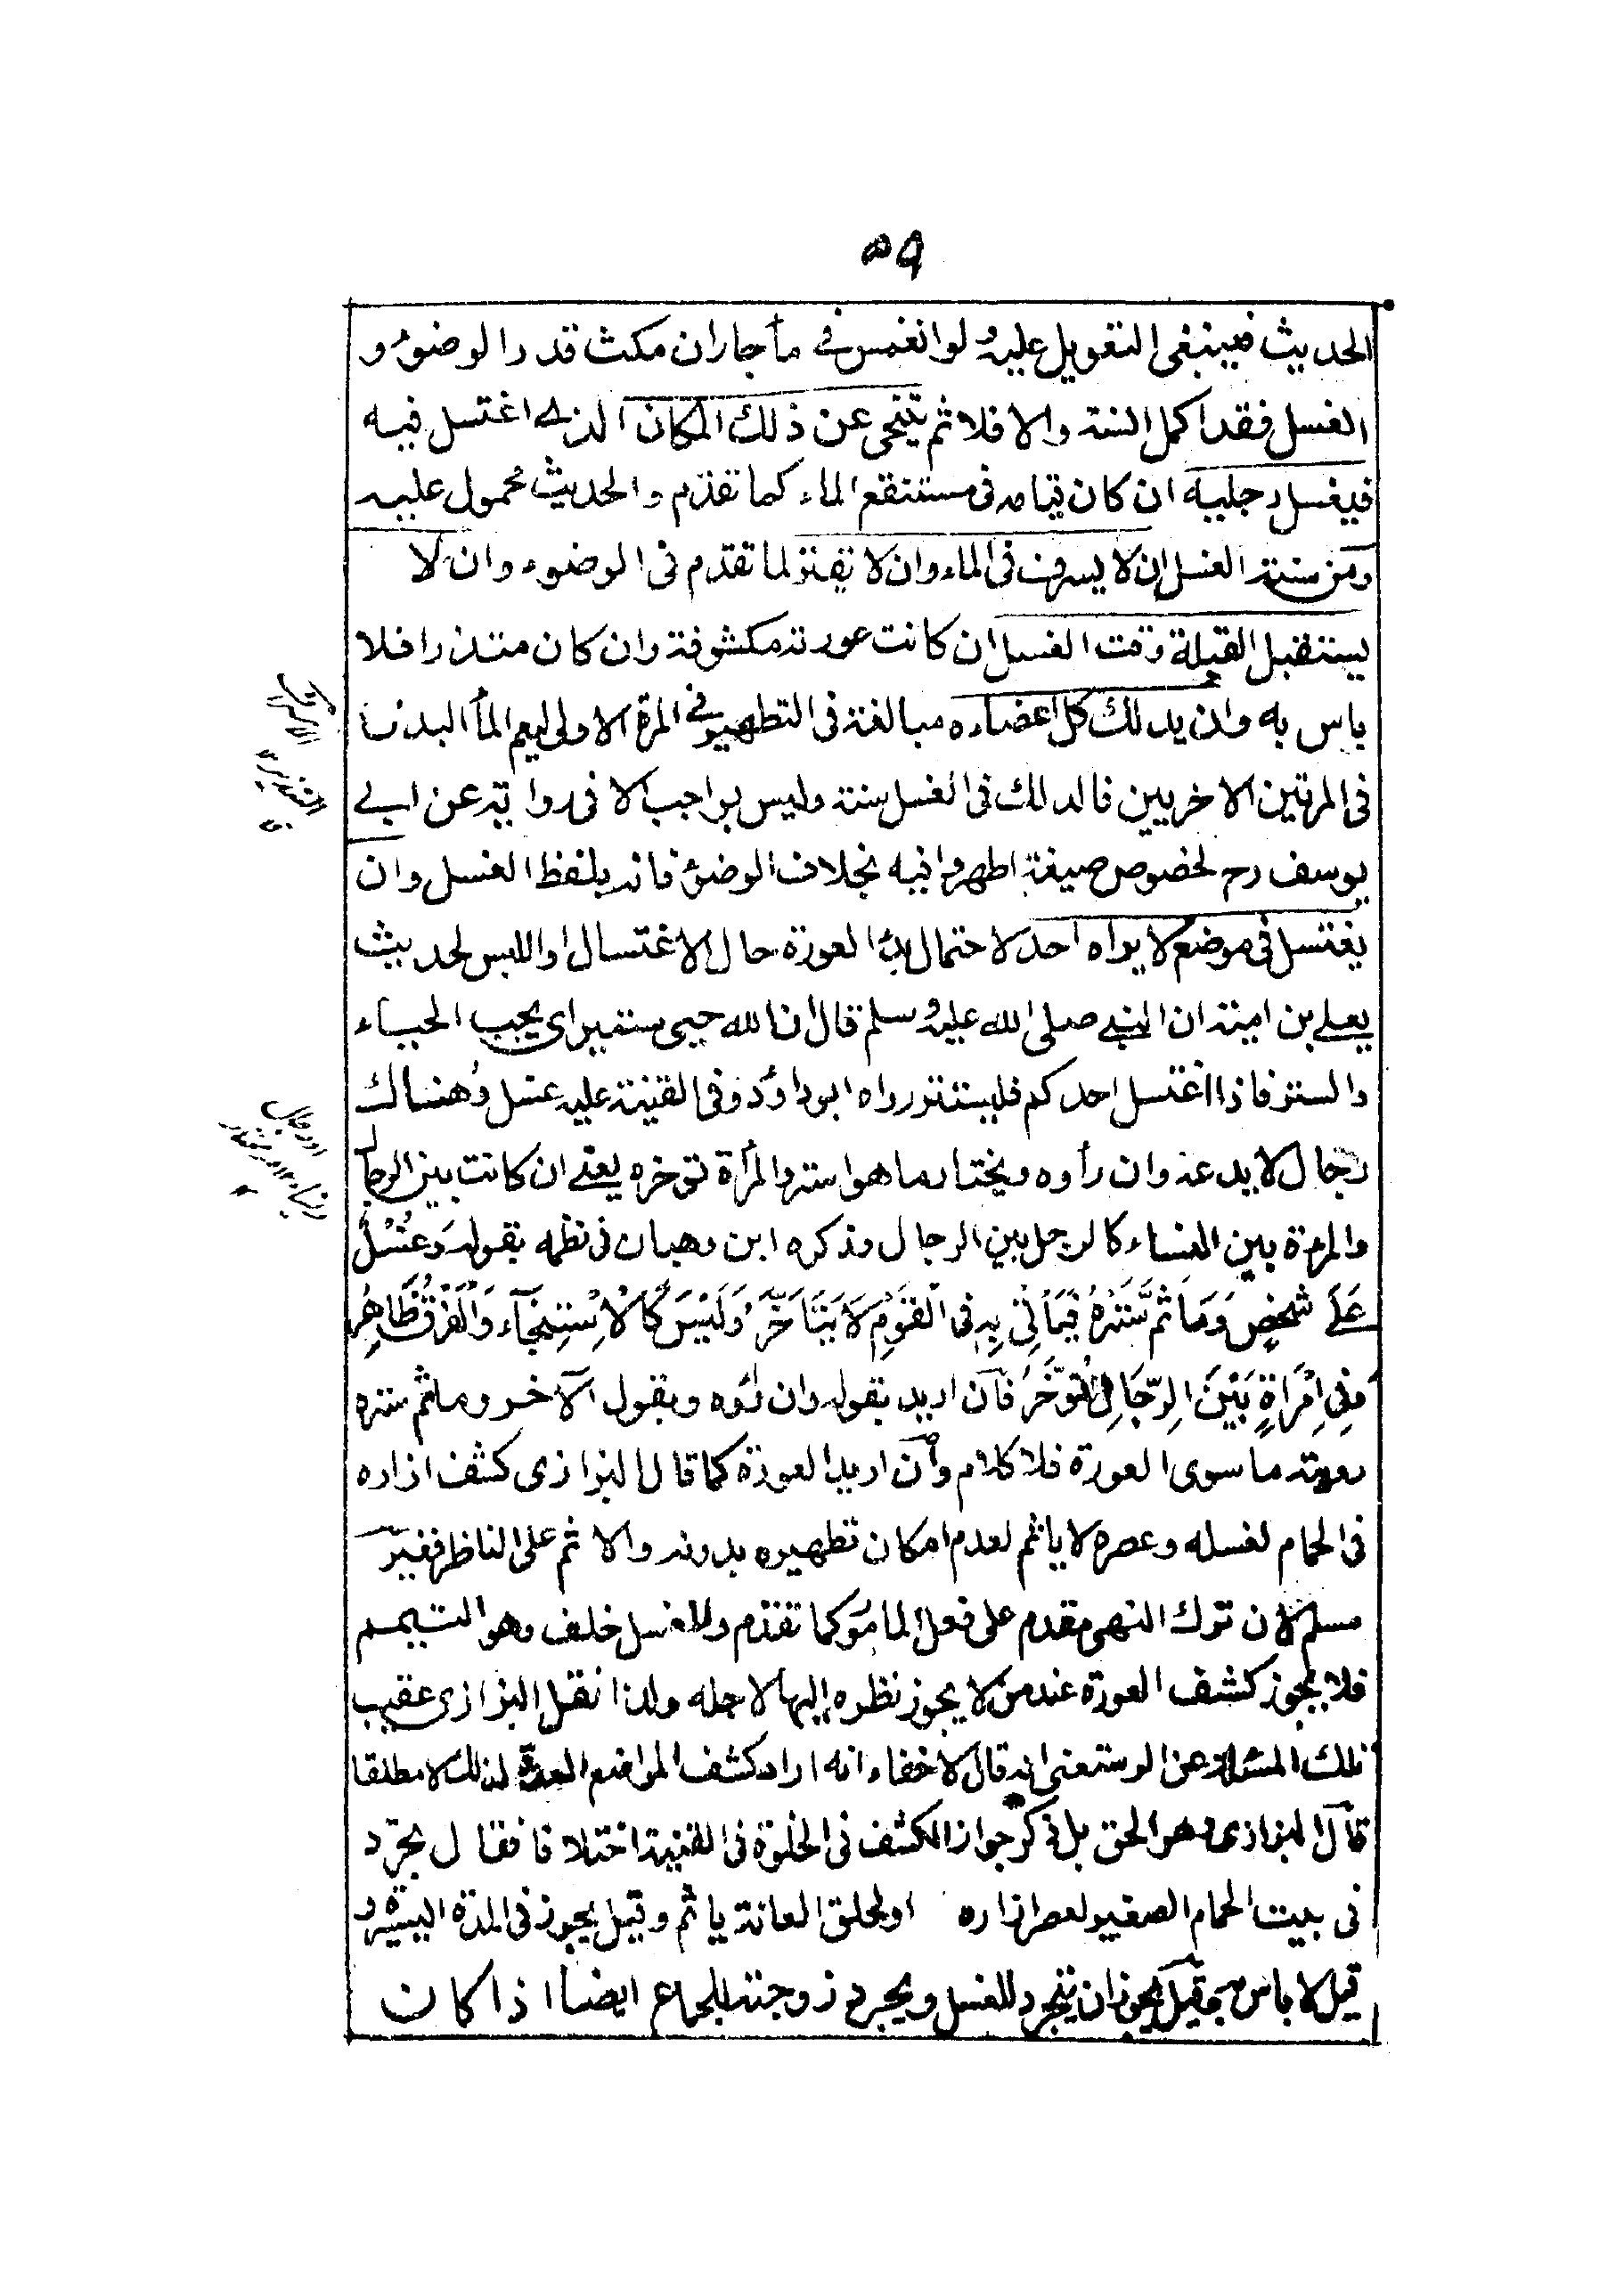 ٥٩
الحديث فينبغي التعويل عليه ولو انغمس في ماء جار ان مكث قدر الوضوء و
الغسل فقد اكمل السنة والا فلا ثم يتنحى عن ذلك المكان الذي اغتسل فيه
فيغسل رجليه ان كان قيامه في مستنقع الماء كما تقدم والحديث محمول عليه
ومن سنته الغسل ان لا يسرف في الماء وان لا يقتر لما تقدم في الوضوء وان لا
يستقبل القبلة وقت الغسل ان كانت عورته مكشوفة وان كان متزرا فلا
باس به وان يدلك كل اعضاءه مبالغة في التطهير في المرة الاولى ليعم الماء البدن
في المرتين الاخريين فالدلك في الغسل سنة وليس بواجب الا في رواية عن ابي
يوسف رح لخصوص صيغة اطهروا فيه بخلاف الوضوء فانه بلفظ الغسل وان
يغتسل في موضع لا يراه احد لاحتمال بدو العورة حال الاغتسال او اللبس لحديث
يعلى بن امية ان النبي صلى الله عليه وسلم قال ان الله حيي ستير اي يحب الحياء
والستر فاذا اغتسل احدكم فليستتر رواه ابو داود وفي القنية عليه غسل وهناك
رجال لا يدعه وان رأوه ويختار ما هو استر والمرأة تؤخره يعني ان كانت بين الرجال
والمرءة بين النساء كالرجل بين الرجال وذكره ابن وهبان في نظمه بقوله وَغُسْلٌ
عَلَى شَخْصٍ وَمَا ثَمَّ سُتْرَةٌ فَيَأْتِي بِهِ فِي الْقَوْمِ لَا يَتَأَخَّرُ وَلَيْسَ كَالْاِسْتِنْجَاءِ وَالْفَرْقُ ظَاهِرٌ
وَفِي اِمْرَأَةٍ بَيْنَ الرِّجَالِ تُؤَخِّرُ فان اريد بقوله وان رأوه وبقول الآخر وما ثم سترة
رويته ما سوى العورة فلا كلام وان اريد العورة كما قال البزازي كشف ازاره
في الحمام لغسله وعصره لا ياثم لعدم امكان تطهيره بدونه والاثم على الناظر فغير
مسلم لان ترك النهي مقدم على فعل المامور كما تقدم وللغسل خلف وهو التيمم
فلا يجوز كشف العورة عند من لا يجوز نظره اليها لاجله ولذا نقل البزازي عقيب
تلك المسئلة عن الوستغني انه قال لا خفاء انه اراد كشف المواضع العورة لذلك لا مطلقا
قال البزازي وهو الحق بل ذكر جواز الكشف في الخلوة في القنية اختلافا فقال تجرد
في بيت الحمام الصغير لعصر ازاره او لحلق العانة ياثم وقيل يجوز في المدة اليسيرة و
قيل لا باس به وقيل يجوز ان يتجرد للغسل ويجرد زوجته للجماع ايضا اذا كان